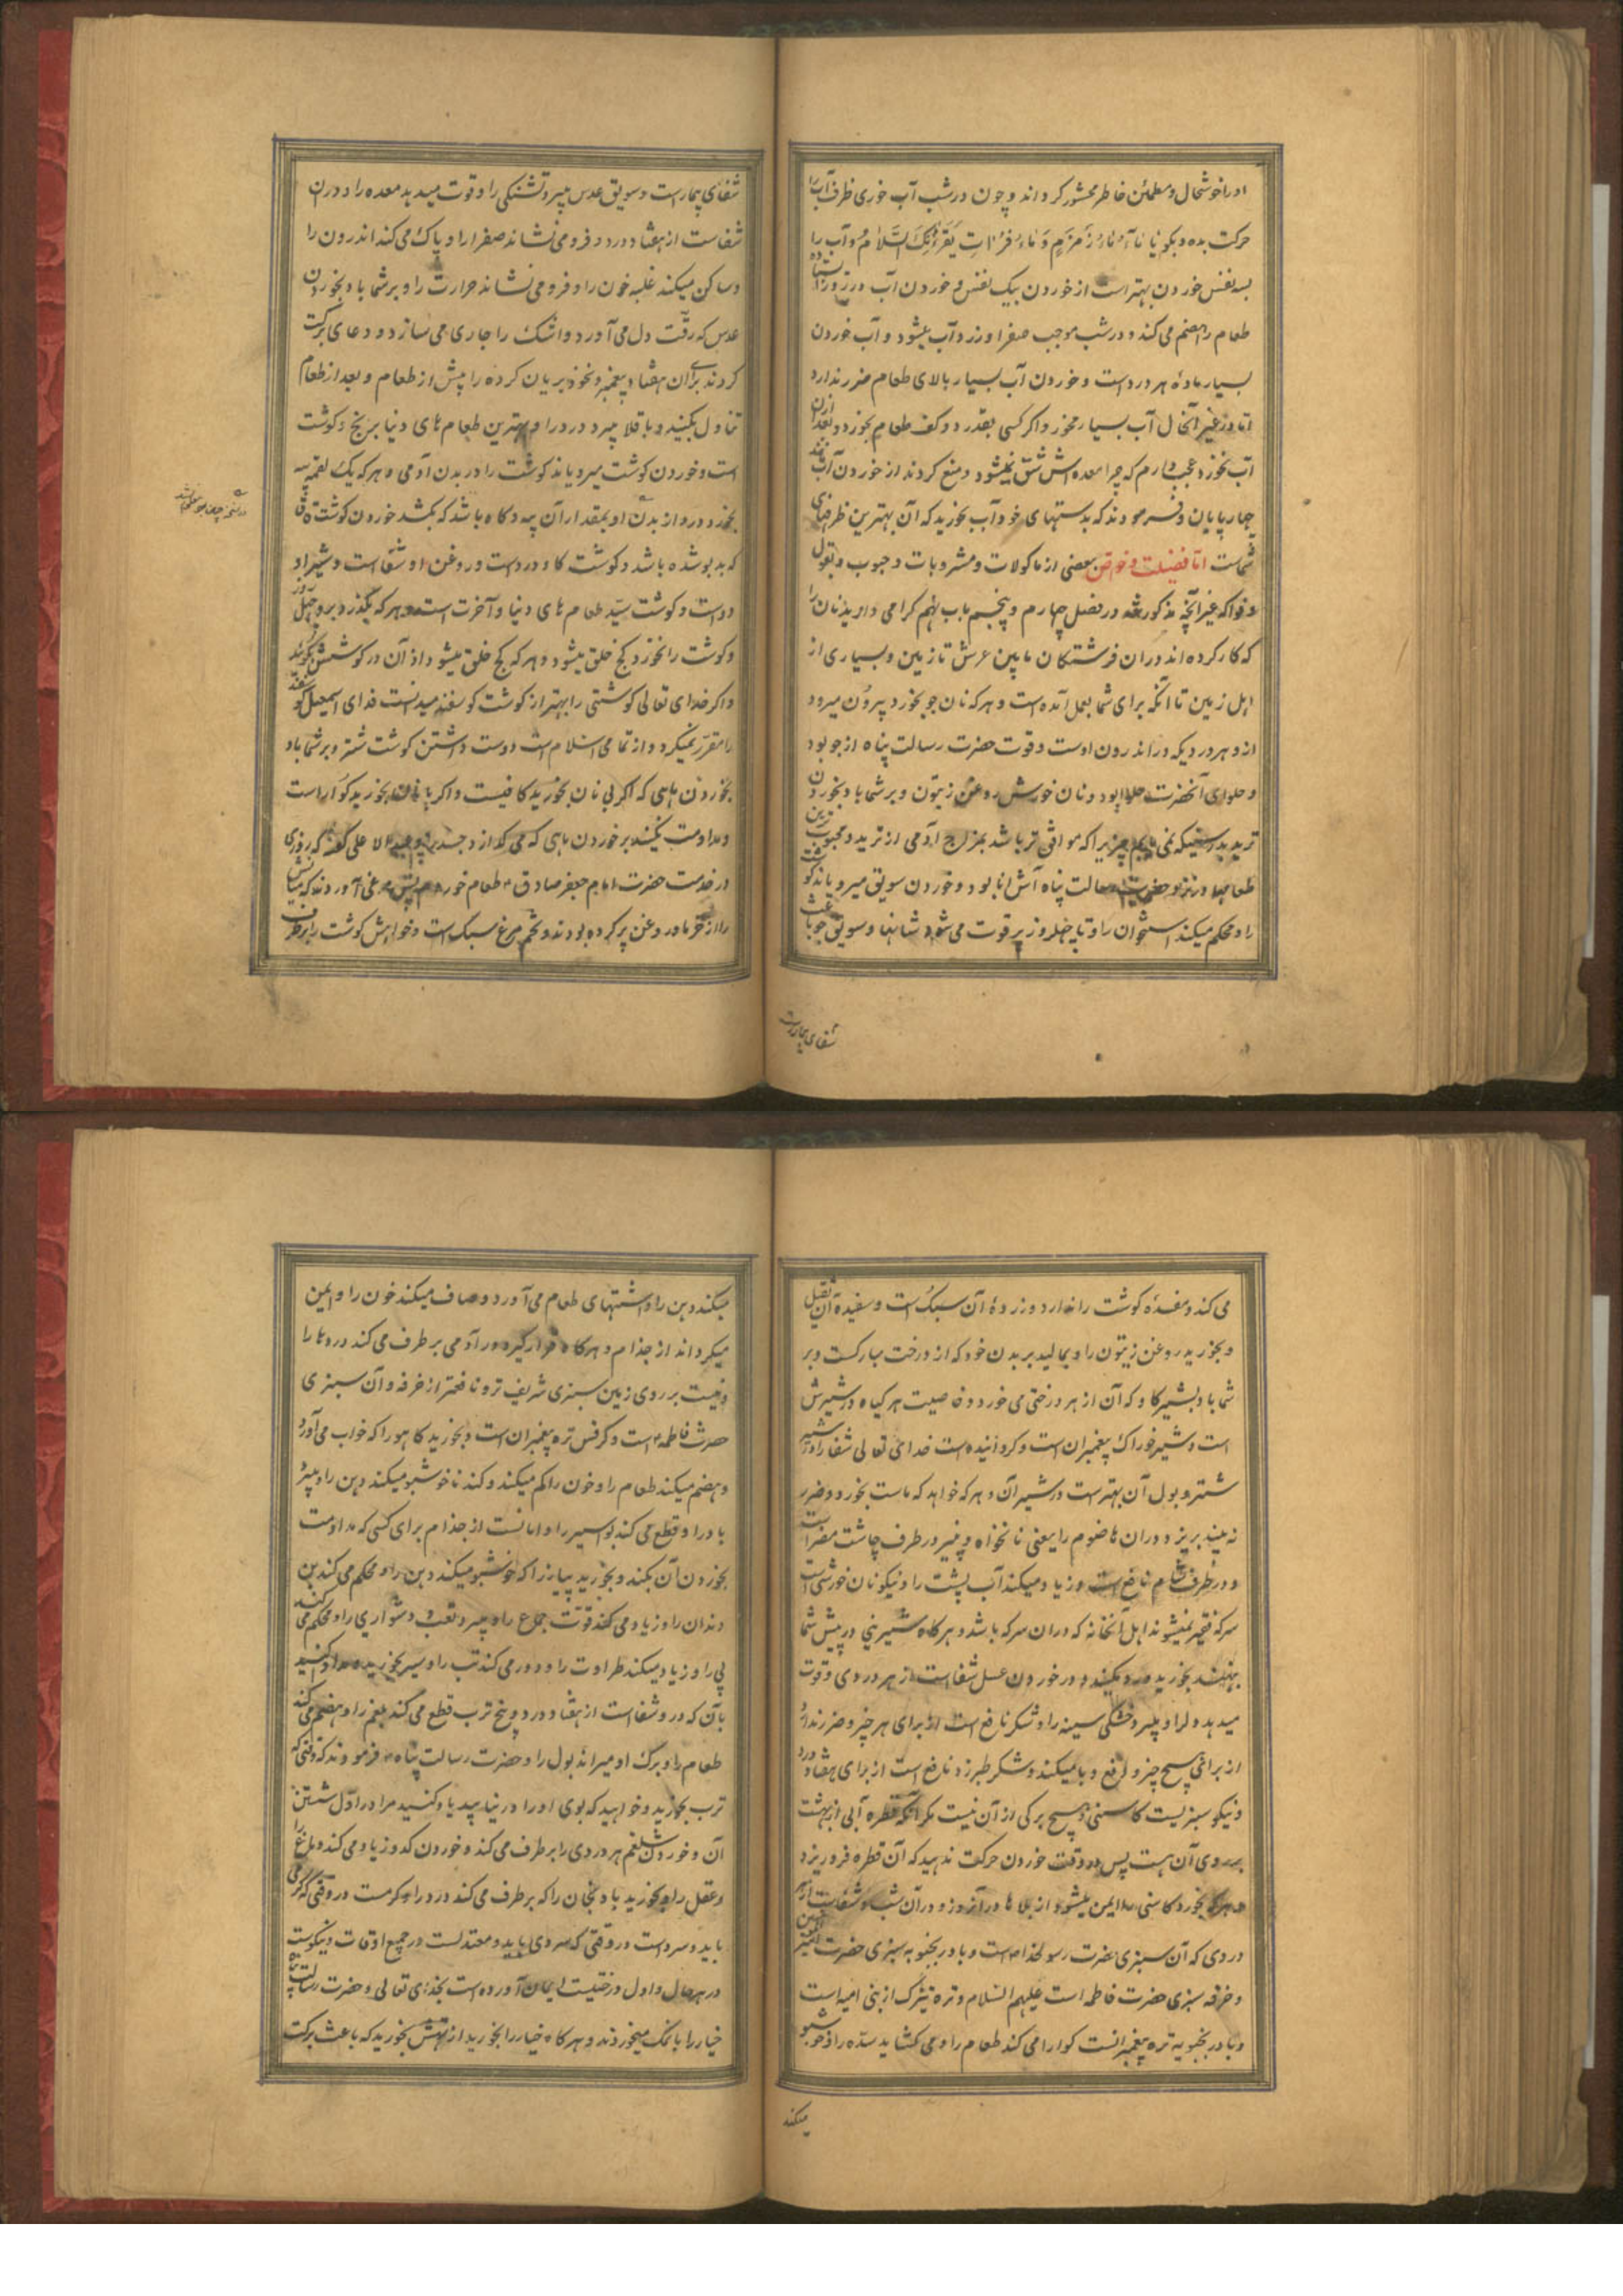 اورا خوشحال و مطمئن خاطر محشور کرداند و چون در شب آب خوری ظرف آب را
حرکت بده و بکو یا مآء مآءُ زَمزَمٍ وَ مآءُ فُراتٍ یَقرَءُنِکَ السَّلامُ و آب را
بسه نفس خوردن بهتر است از خوردن بیک نفس و خوردن آب در روز ایستاده
طعام را هضم می کند و در شب موجب صفرا و زرد آب میشود و آب خوردن
بسیار مادهٔ هر درد است و خوردن آب بسیار بالای طعام ضرر ندارد
اما در غیر آنحال آب بسیار مخور و اکر کسی بقدر دو کف طعام بخورد و بعد از آن
آب نخورد عجب دارم که چرا معده اش شق نمیشود و منع کردند از خوردن آب مانند
چهارپایان و فرمودند که بدستهای خود آب بخورید که آن بهترین ظرفهای
شماست اما فضیلت و خواص بعضی از ماکولات و مشروبات و حبوب و بقول
و فواکه غیر آنچه مذکور شد در فصل چهارم و پنجم باب نهم کرامی دارید نان را
که کار کرده اند در آن فرشتکان مابین عرش تا زمین و بسیاری از
اهل زمین تا آنکه برای شما بعمل آمده است و هر که نان جو بخورد بیرون میرود
از و هر دردیکه در اندرون اوست و قوت حضرت رسالت پناه از جو بود
و حلوای آنحضرت خرما بود و نان خورش روغن زیتون و بر شما باد بخوردن
ترید بدرستیکه نمی یابم چیزیرا که موافق تر باشد بمزاج آدمی از ترید و محبوب ترین
طعامها در نزد حضرت رسالت پناه آش انا بود و خوردن سویق میرویاند کوشت
را و محکم میکند استخوان را و تا چهل روز پر قوت می شود شانها و سویق جو باعث
شفای بیمارست
شفای بیمارست و سویق عدس میبرد تشنکی را و قوت میدهد معده را و در آن
شفاست از هفتاد درد و فرو می نشاند صفرا را و پاک می کند اندرون را
و ساکن میکند غلبه خون را و فرو می نشاند حرارت را و بر شما باد بخوردن
عدس که رقّت دل می آورد و اشک را جاری می سازد و دعای برکت
کردند برای آن هفتاد پیغمبر و نخود بریان کرده را پیش از طعام و بعد از طعام
تناول بکنید و باقلا میبرد درد را و بهترین طعام های دنیا برنج و کوشت
است و خوردن کوشت میرویاند کوشت را در بدن آدمی و هر که یک لقمه پیه
بخورد درد از بدن او بمقدار آن پیه و کاه باشد که بکشد خوردن کوشت
که بدبو شده باشد و کوشت کاو دردست و روغن او شفاست و شیر او
دواست و کوشت سیّد طعام های دنیا و آخرت است و هر که بگذرد برو چهل روز
و کوشت را نخورد کج خلق میشود و هر که کج خلق میشود اذان در کوشش بکویند
و اکر خدای تعالی کوشتی را بهتر از کوشت کوسفند میدانست فدای اسمعیل کوسفند
را مقرر نمیکرد و از تمامی اسلام است دوست داشتن کوشت شتر و بر شما باد
بخوردن ماهی که اکر بی نان بخورید کافیست و اکر با نان بخورید کواراست
و مداومت نکنید بر خوردن ماهی که می کدازد جسد را و عبد الاعلی کفته که روزی
در خدمت حضرت امام جعفر صادق ع طعام خوردم پس مرغی آوردند که میانش
را از خرما و روغن پر کرده بودند و تخم مرغ سبک است و خواهش کوشت را برطرف
می کند و مفسدهٔ کوشت را ندارد و زردهٔ آن سبک است و سفیدهٔ آن ثقیل
و بخورید روغن زیتون را و بمالید بر بدن خود که از درخت مبارکست و بر
شما باد بشیر کاو که آن از هر درختی می خورد و خاصیت هر کیاه در شیرش
است و شیر خوراک پیغمبران است و کردانیده است خدای تعالی شفا را در شیر
شتر و بول آن بهتر است در شیر آن و هر که خواهد که ماست بخورد و ضرر
نه بیند بریزد در آن هاضوم را یعنی نانخواه و پنیر در طرف چاشت مضر است
و در طرف شام نافع است و زیاد میکند آب پشت را و نیکو نان خورشی است
سرکه فقیر نمیشوند اهل آنخانه که در آن سرکه باشد و هر کاه شیرینی در پیش شما
بنهند بخورید و رد مکنید و در خوردن عسل شفاست از هر دردی و قوت
میدهد دل را و میبرد خشکی سینه را و شکر نافع است از برای هر چیز و ضرر ندارد
از برای هیچ چیز و رفع وبا میکند و شکر طبرزد نافع است از برای هفتاد درد
و نیکو سبزیست کاسنی و هیچ برکی از آن نیست مکر آنکه قطره آبی از بهشت
بر روی آن هست پس در وقت خوردن حرکت ندهید که آن قطره فرو ریزد
و هر که بخورد کاسنی را ایمن میشود از بلاها در آنروز و در آن شب و شفاست از هر
دردی که آن سبزی حضرت رسولخداست و بادرنجبویه سبزی حضرت امیر المؤمنین
و خرفه سبزی حضرت فاطمه است علیهم السلام و تره تیزک از بنی امیه است
و بادرنجبویه تره پیغمبرانست کوارا می کند طعام را و می کشاید سدّه را و خوشبو
میکند
میکند دهن را و اشتهای طعام می آورد و صاف میکند خون را و ایمن
میکرداند از جذام و هرکاه قرار گیرد در آدمی بر طرف می کند دردها را
و نیست بر روی زمین سبزی شریف تر و نافعتر از خرفه و آن سبزی
حضرت فاطمه است و کرفس تره پیغمبران است و بخورید کاهو را که خواب می آورد
و هضم میکند طعام را و خون را کم میکند و کندنا خوشبو میکند دهن را و میبرد
باد را و قطع می کند بواسیر را و امانست از جذام برای کسی که مداومت
بخوردن آن بکند و بخورید پیاز را که خوشبو میکند دهن را و محکم می کند بن
دندان را و زیاد می کند قوّت جماع را و میبرد تعب و دشواری را و محکم می کند
پی را و زیاد میکند طراوت را و دور می کند تب را و سیر بخورید و مداوا کنید
بآن که در و شفاست از هفتاد درد و بیخ ترب قطع می کند بلغم را و هضم می کند
طعام را و برک او میراند بول را و حضرت رسالت پناه فرمودند که وقتی که
ترب بخورید و خواهید که بوی او را در نیابید یاد کنید مرا در اول شکستن
آن و خوردن شلغم هر دردی را بر طرف می کند و خوردن کدو زیاد می کند دماغ را
و عقل را و بخورید بادنجان را که بر طرف می کند درد را و کرمست در وقتی که کرمی
باید و سرد است در وقتی که سردی باید و معتدلست در جمیع اوقات و نیکوست
در هر حال و اول درختیست ایمان آورده است بخدای تعالی و حضرت رسالت پناه
خیار را با نمک میخوردند و هر کاه خیار را بخورید از تهش بخورید که باعث برکت